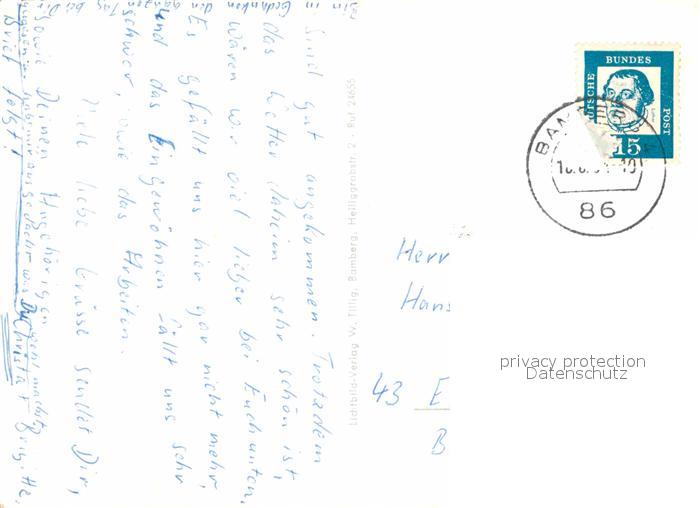 Sind gut angekommen. Trotzdem
das Wetter daheim sehr schön ist,
wären wir viel lieber bei Euch unten.
Es gefällt uns hier gar nicht mehr,
und das Eingewöhnen fällt uns sehr
schwer, sowie das Arbeiten.
Viele liebe Grüsse sendet Dir,
sowie Deinen Angehörigen
Christa + Brigitte.
Brief folgt!
bin in Gedanken den ganzen Tag bei Dir
Lichtbild-Verlag W. Tillig, Bamberg, Heiliggrabstr. Ruf 24655
DEUTSCHE BUNDES POST
15
BAM
86
Herr
Hans
43 E
B
privacy protection
Datenschutz